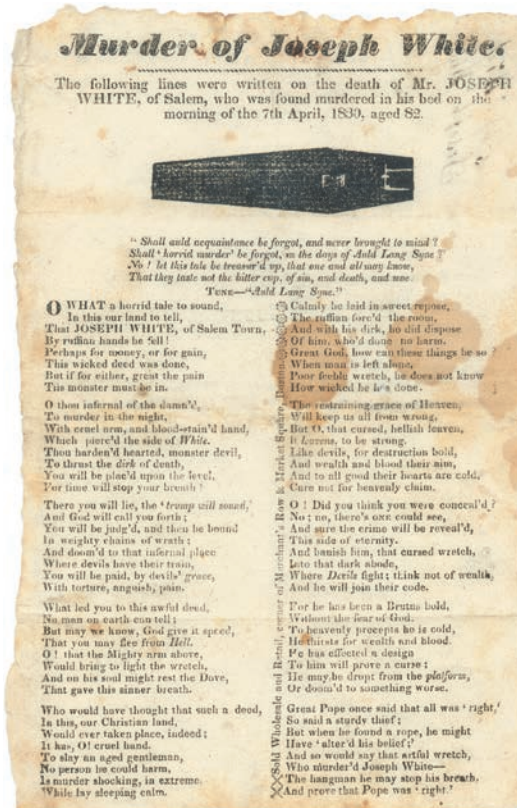 Murder of Joseph White.
The following lines were written on the death of Mr. JOSEPH
WHITE, of Salem, who was found murdered in his bed on the
morning of the 7th April, 1830, aged 82.
" Shall auld acquaintance be forgot, and never brought to mind ?
Shall ' horrid murder' be forgot, in the days of Auld Lang Syne ?
No ! let this tale be treasur'd up, that one and all may know,
That they taste not the bitter cup, of sin, and death, and woe.
TUNE—"Auld Lang Syne."
O WHAT a horrid tale to sound,
In this our land to tell,
That JOSEPH WHITE, of Salem Town,
By ruffian hands he fell !
Perhaps for money, or for gain,
This wicked deed was done,
But if for either, great the pain
This monster must be in.
O thou infernal of the damn'd,
To murder in the night,
With cruel arm, and blood-stain'd hand,
Which pierc'd the side of White.
Thou harden'd hearted, monster devil,
To thrust the dirk of death,
You will be plac'd upon the level,
For time will stop your breath !
There you will lie, the 'trump will sound,'
And God will call you forth ;
You will be judg'd, and then be bound
In weighty chains of wrath ;
And doom'd to that infernal place
Where devils have their train,
You will be paid, by devils' grace,
With torture, anguish, pain.
What led you to this awful deed,
No man on earth can tell ;
But may we know, God give it speed,
That you may flee from Hell.
O ! that the Mighty arm above,
Would bring to light the wretch,
And on his soul might rest the Dove,
That gave this sinner breath.
Who would have thought that such a deed,
In this, our Christian land,
Would ever taken place, indeed ;
It has, O! cruel hand.
To slay an aged gentleman,
No person he could harm,
Is murder shocking, in extreme
While lay sleeping calm.
Sold Wholesale and Retail, corner of Merchant's Row in Market Square, Boston.
Calmly he laid in sweet repose,
The ruffian forc'd the room,
And with his dirk, he did dispose
Of him, who'd done no harm.
Great God, how can these things be so ?
When man is left alone,
Poor feeble wretch, he does not know
How wicked he has done.
The restraining grace of Heaven,
Will keep us all from wrong,
But O, that cursed, hellish leaven,
It leavens, to be strong.
Like devils, for destruction bold,
And wealth and blood their aim,
And to all good their hearts are cold,
Care not for heavenly claim.
O ! Did you think you were conceal'd ?
No ; no, there's ONE could see,
And sure the crime will be reveal'd,
This side of eternity.
And banish him, that cursed wretch,
Into that dark abode,
Where Devils fight ; think not of wealth,
And he will join their code.
For he has been a Brutus bold,
Without the fear of God.
To heavenly precepts he is cold,
He thirsts for wealth and blood.
He has effected a design
To him will prove a curse ;
He may be dropt from the platform,
Or doom'd to something worse.
Great Pope once said that all was ' right,'
So said a sturdy thief ;
But when he found a rope, he might
Have ' alter'd his belief ;'
And so would say that artful wretch,
Who murder'd Joseph White—
The hangman he may stop his breath,
And prove that Pope was ' right.'